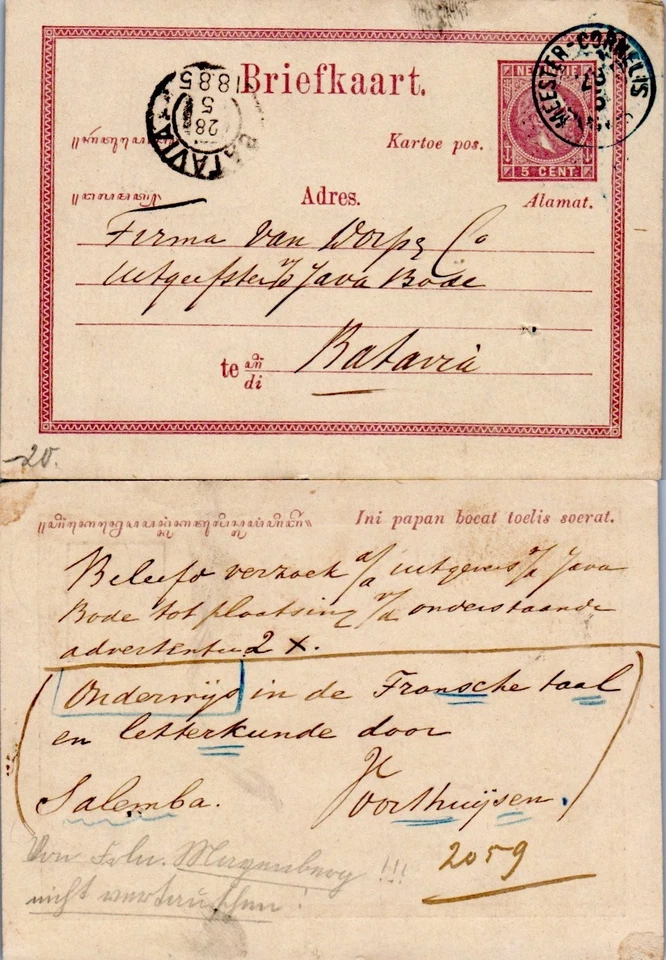 Briefkaart.
Kartoe pos.
Adres.
Alamat.
NED. INDIE
5 CENT
MEESTER-CORNELIS
BATAVIA
28
5
1885
Firma Van Dorp & Co
uitgeefster v/d Java Bode
te
di
Batavia
-20.
Ini papan boeat toelis soerat.
Beleefd verzoek a/d uitgevers v/d Java
Bode tot plaatsing v/d onderstaande
advertentie 2 x.
Onderwijs in de Fransche taal
en letterkunde door
Salemba. Voorthuijsen.
2059
Von Frln. !!!
nicht vertauschen!